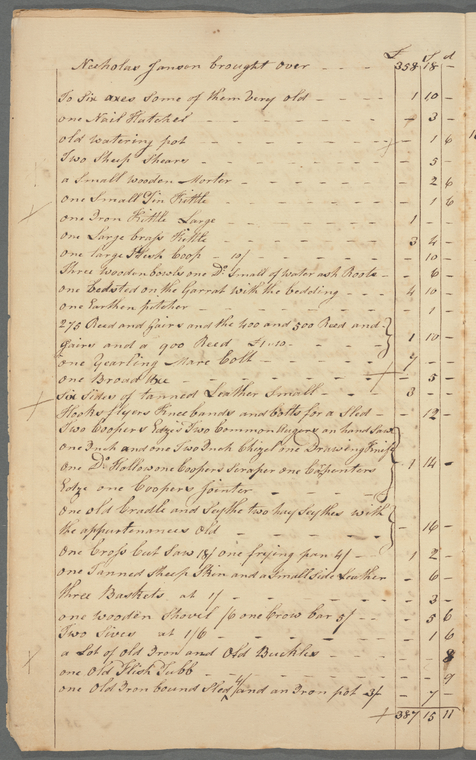 £ S d
Nicholas Janson brought over — 358 18 —
To Six axes Some of them Very old — 1 10 —
one Nail Hatchel — 3 —
old watering pot — 1 6
Two Sheep Shears — 5 —
a Small wooden Morter — 2 6
one Small Tin Kittle — 1 6
one Iron Kittle Large — 1
one Large brass Kittle — 3 4
one large Coop — 10/ 10 —
Three Wooden bowls one Do. Small of water ash Roots — 6 —
one bedsted on the Garrat with the bedding — 4 10
one Earthen pitcher — 1
275 Reed and Gairs and the 400 and 500 Reed and
Gairs and a 900 Reed £1-10 — 1 10 —
one Yearling Mare Colt — 7 —
one Broad — 5 —
Six Sides of tanned Leather Small — 3 —
Hooks flyers Knee bands and bolts for a Sled — 12 —
Two Coopers Edzes Two Common Augers an hand Saw
one Inch and one Two Inch Chizel one Drawing Knife
one Do. Hollow one Coopers Scraper one Carpenters
Edze one Coopers Jointer — 1 14 —
one old Cradle and Scythe two hay Scythes with
the appurtenances old — 16 —
one Cross Cut Saw 18/ one frying pan 4/ — 1 2 —
one Tanned Sheep Skin and a Small Side Leather — 6 —
three Baskets at 1/ — 3 —
one wooden Shovel /6 one Crow bar 5/ — 5 6
Two Sives at 1/6 — 1 6
a Lot of old Iron and Old Buckles — 8
one Old Flish Tubb — 9
one Old Iron bound Sled 4/ and an Iron pot 3/ — 7 —
387 15 11